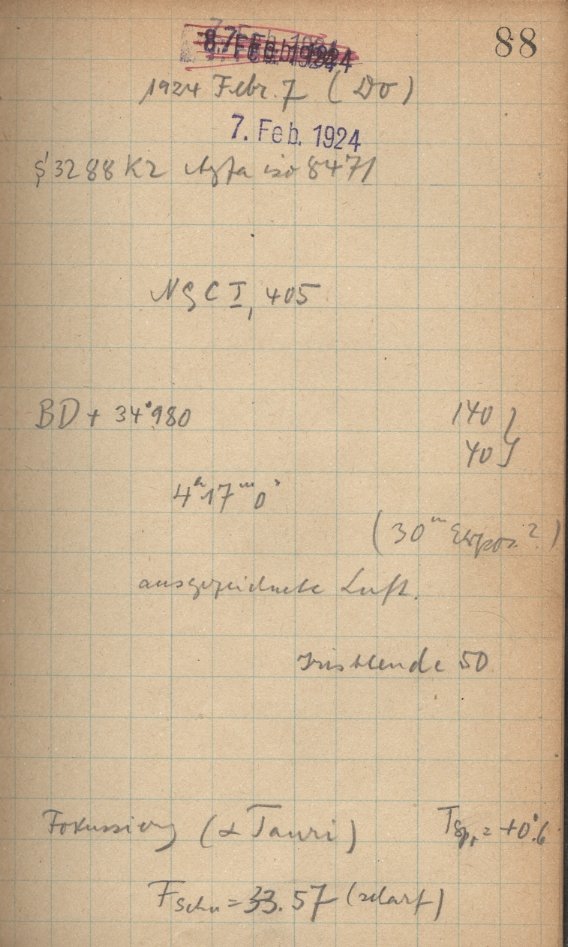 88
1924 Febr. 7 (Do)
7. Feb. 1924
S 3288 K2 Agfa iso 8471
NGC I, 405
BD + 34°980 140 }
40 }
4ʰ17ᵐ0ˢ
(30ᵐ Expos.?)
ausgezeichnete Luft.
Irisblende 50
Fokussierung (α Tauri) TSp. = +0°.6
FSchn = 33.57 (scharf)